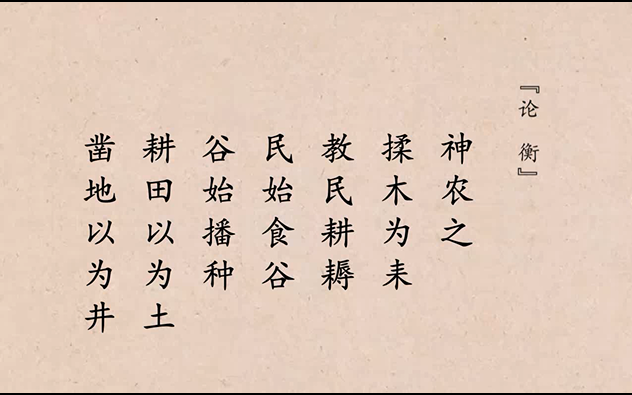 『论 衡』
神农之
揉木为耒
教民耕耨
民始食谷
谷始播种
耕田以为土
凿地以为井